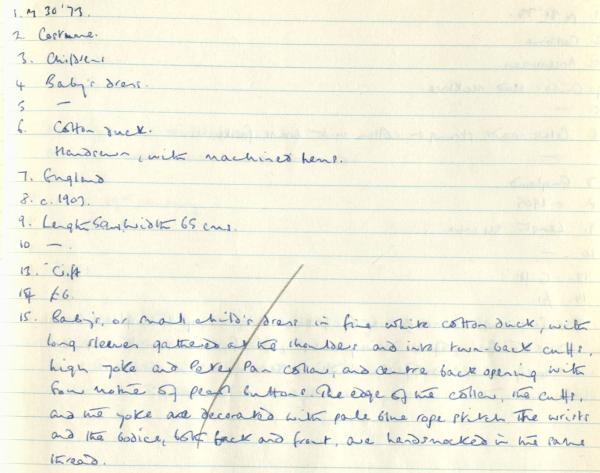 1. M 30 '73.
2. Costume.
3. Children
4 Baby's dress.
5 —
6. Cotton duck.
Handsewn, with machined hems.
7. England
8. c. 1903.
9. Length 59 width 65 cms.
10 —.
13. Gift
14 £6.
15. Baby's, or small child's dress in fine white cotton duck, with
long sleeves gathered at the shoulders and into turn-back cuffs,
high yoke and Peter Pan collar, and centre back opening with
four mother of pearl buttons. The edge of the collar, the cuffs,
and the yoke are decorated with pale blue rope stitch The wrists
and the bodice, both back and front, are handsmocked in the same
thread.